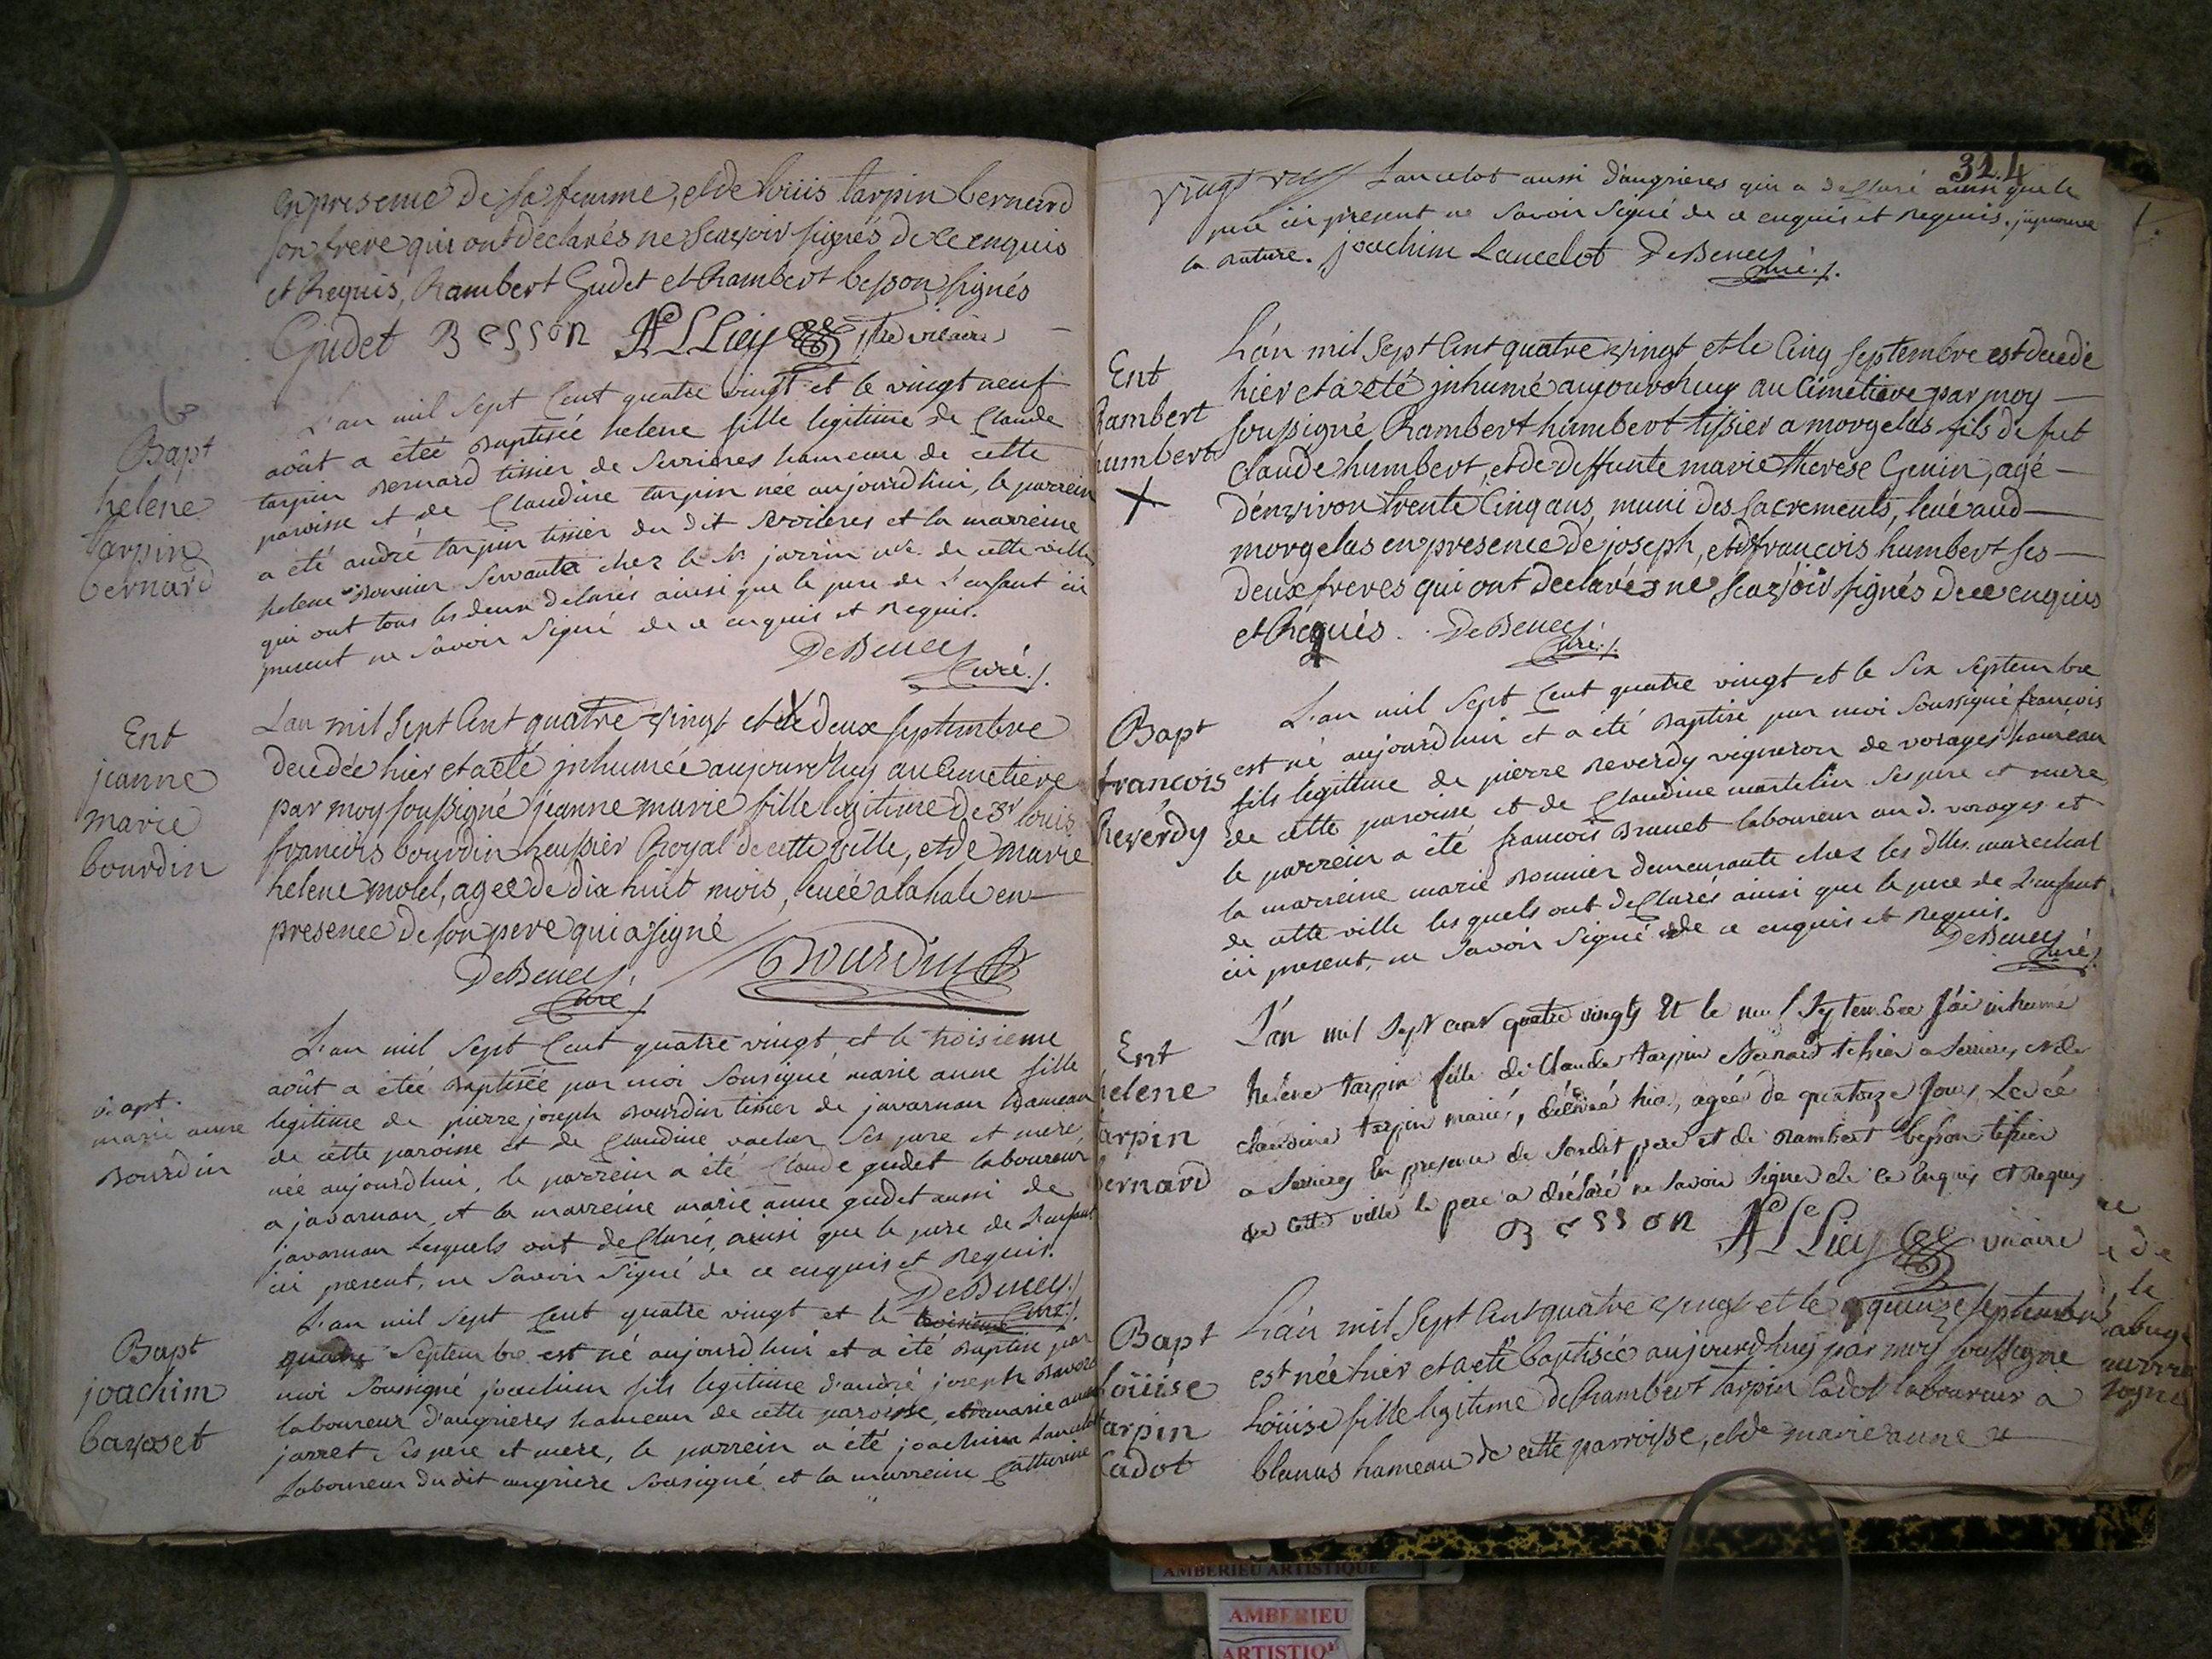 en presence de sa femme, et de loüis tarpin bernard
son frere qui ont déclarés ne scavoir signés de ce enquis
et Requis, Rambert Gudet et Rambert besson signés
Gudet Besson vicaire
Bapt
helene
tarpin
bernard
L'an mil sept Cent quatre vingt et le vingt neuf
août a êteé Baptisée helene fille legitime de Claude
tarpin Bernard tissier de Serrieres hameau de cette
paroisse et de Claudine tarpin neé aujourdhui, le parrein
a été andré tarpin tissier du dit serrieres et la marreine
helene Bonnier Servante chez le Sr jarrin de cette ville
qui ont tous les deux déclarés ainsi que le pere de L'enfant ici
present ne savoir signé de ce enquis et Requis.
DeBeney
Curé
Ent
jeanne
marie
bourdin
L'an mil sept Cent quatre vingt et le deux septembre
decedée hier et a eté jnhumée aujourd'huy au Cimetiere
par moy soussigné jeanne marie fille legitime de Sr louis
francois bourdin huissier Royal de cette ville, et de marie
helene molel, agee de dix huit mois, leuée a la hale en
presence de son pere qui a signé
DeBeney Bourdin
Curé
Bapt.
marie anne
Bourdin
L'an mil sept Cent quatre vingt et le troisieme
août a êteé Baptisée par moi Sousigné marie anne fille
legitime de pierre joseph Bourdin tissier de javornan hameau
de cette paroisse et de Claudine vacher Ses pere et mere,
née aujourdhui, le parrein a été Claude gudet laboureur
a javornan, et la marreine marie anne gudet aussi de
javornan Lesquels ont deClarés, ainsi que le pere de L'enfant
ici present, ne Savoir Signé de ce enquis et Requis.
DeBeney
Curé
Bapt
joachim
bavoset
L'an mil sept Cent quatre vingt et le troisieme
quatre Septembre est né aujourdhui et a été Baptisé par
moi Soussigné joachim fils legitime d'andré joseph
laboureur d'angrieres hameau de cette paroisse, et de marie anne
jarret Ses pere et mere, le parrein a été joachim Lancelot
Laboureur du dit angriere Sousigné et la marreine Catherine
324
Lancelot aussi d'angrieres qui a deClaré ainsi que le
pere ici present ne Savoir Signé de ce enquis et Requis.
la rature. joachim Lancelot DeBeney
Curé
Ent
Rambert
humbert
X
L'an mil sept Cent quatre vingt et le Cinq septembre est decedé
hier et a eté jnhumé aujourdhuy au Cimetiere par moy
soussigné Rambert humbert tissier a morgelas fils de fut
Claude humbert, et de deffunte marie therese Genin, agé
d'environ trente Cinq ans, muni des sacrements, leué aud
morgelas en presence de joseph, et de francois humbert ses
deux freres qui ont declarés ne scavoir signés de ce enquis
et Requis. DeBeney
Curé
Bapt
francois
Reverdy
L'an mil sept Cent quatre vingt et le Six Septembre
est né aujourdhui et a été Baptisé par moi Soussigné françois
fils legitime de pierre Reverdy vigneron de vorages hameau
de cette paroisse et de Claudine martelin Ses pere et mere
le parrein a été francois Brunet laboureur au d. vorages et
la marreine marie Bonnier demeurante chez les dlles. marechal
de cette ville les quels ont deClarés ainsi que le pere de L'enfant
ici present, ne Savoir Signé de ce enquis et Requis.
DeBeney
Curé
Ent
helene
tarpin
bernard
L'an mil Sept cent quatre vingts Et le neuf Septembre J'ai inhumé
helène tarpin fille de Claude tarpin Bernard tissier a Serrieres et de
claudine tarpin mariés, décédée hier, agée de quatorze Jours, Levée
a Serrieres En presence de Sondit pere et de Rambert besson tissier
de cette ville le pere a déclaré ne Savoir Signer de ce Enquis et Requis
Besson vicaire
Bapt
Loüise
tarpin
Cadot
L'an mil sept Cent quatre vingt et le quinze septembre
est née hier et a eté baptisée aujourdhuy par moy soussigné
Loüise fille legitime de Rambert tarpin Cadot laboureur a
blanas hameau de cette parroisse, et de marie anne
AMBERIEU ARTISTIQUE
AMBERIEU